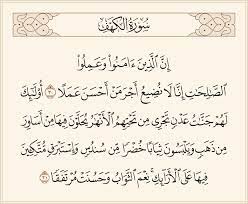 سُورَةُ الكَهْفِ
إِنَّ الَّذِينَ ءَامَنُوا۟ وَعَمِلُوا۟
الصَّٰلِحَٰتِ إِنَّا لَا نُضِيعُ أَجْرَ مَنْ أَحْسَنَ عَمَلًا ٣٠ أُو۟لَٰٓئِكَ
لَهُمْ جَنَّٰتُ عَدْنٍ تَجْرِى مِن تَحْتِهِمُ الْأَنْهَٰرُ يُحَلَّوْنَ فِيهَا مِنْ أَسَاوِرَ
مِن ذَهَبٍ وَيَلْبَسُونَ ثِيَابًا خُضْرًا مِّن سُندُسٍ وَإِسْتَبْرَقٍ مُّتَّكِـِٔينَ
فِيهَا عَلَى الْأَرَآئِكِ نِعْمَ الثَّوَابُ وَحَسُنَتْ مُرْتَفَقًا ٣١